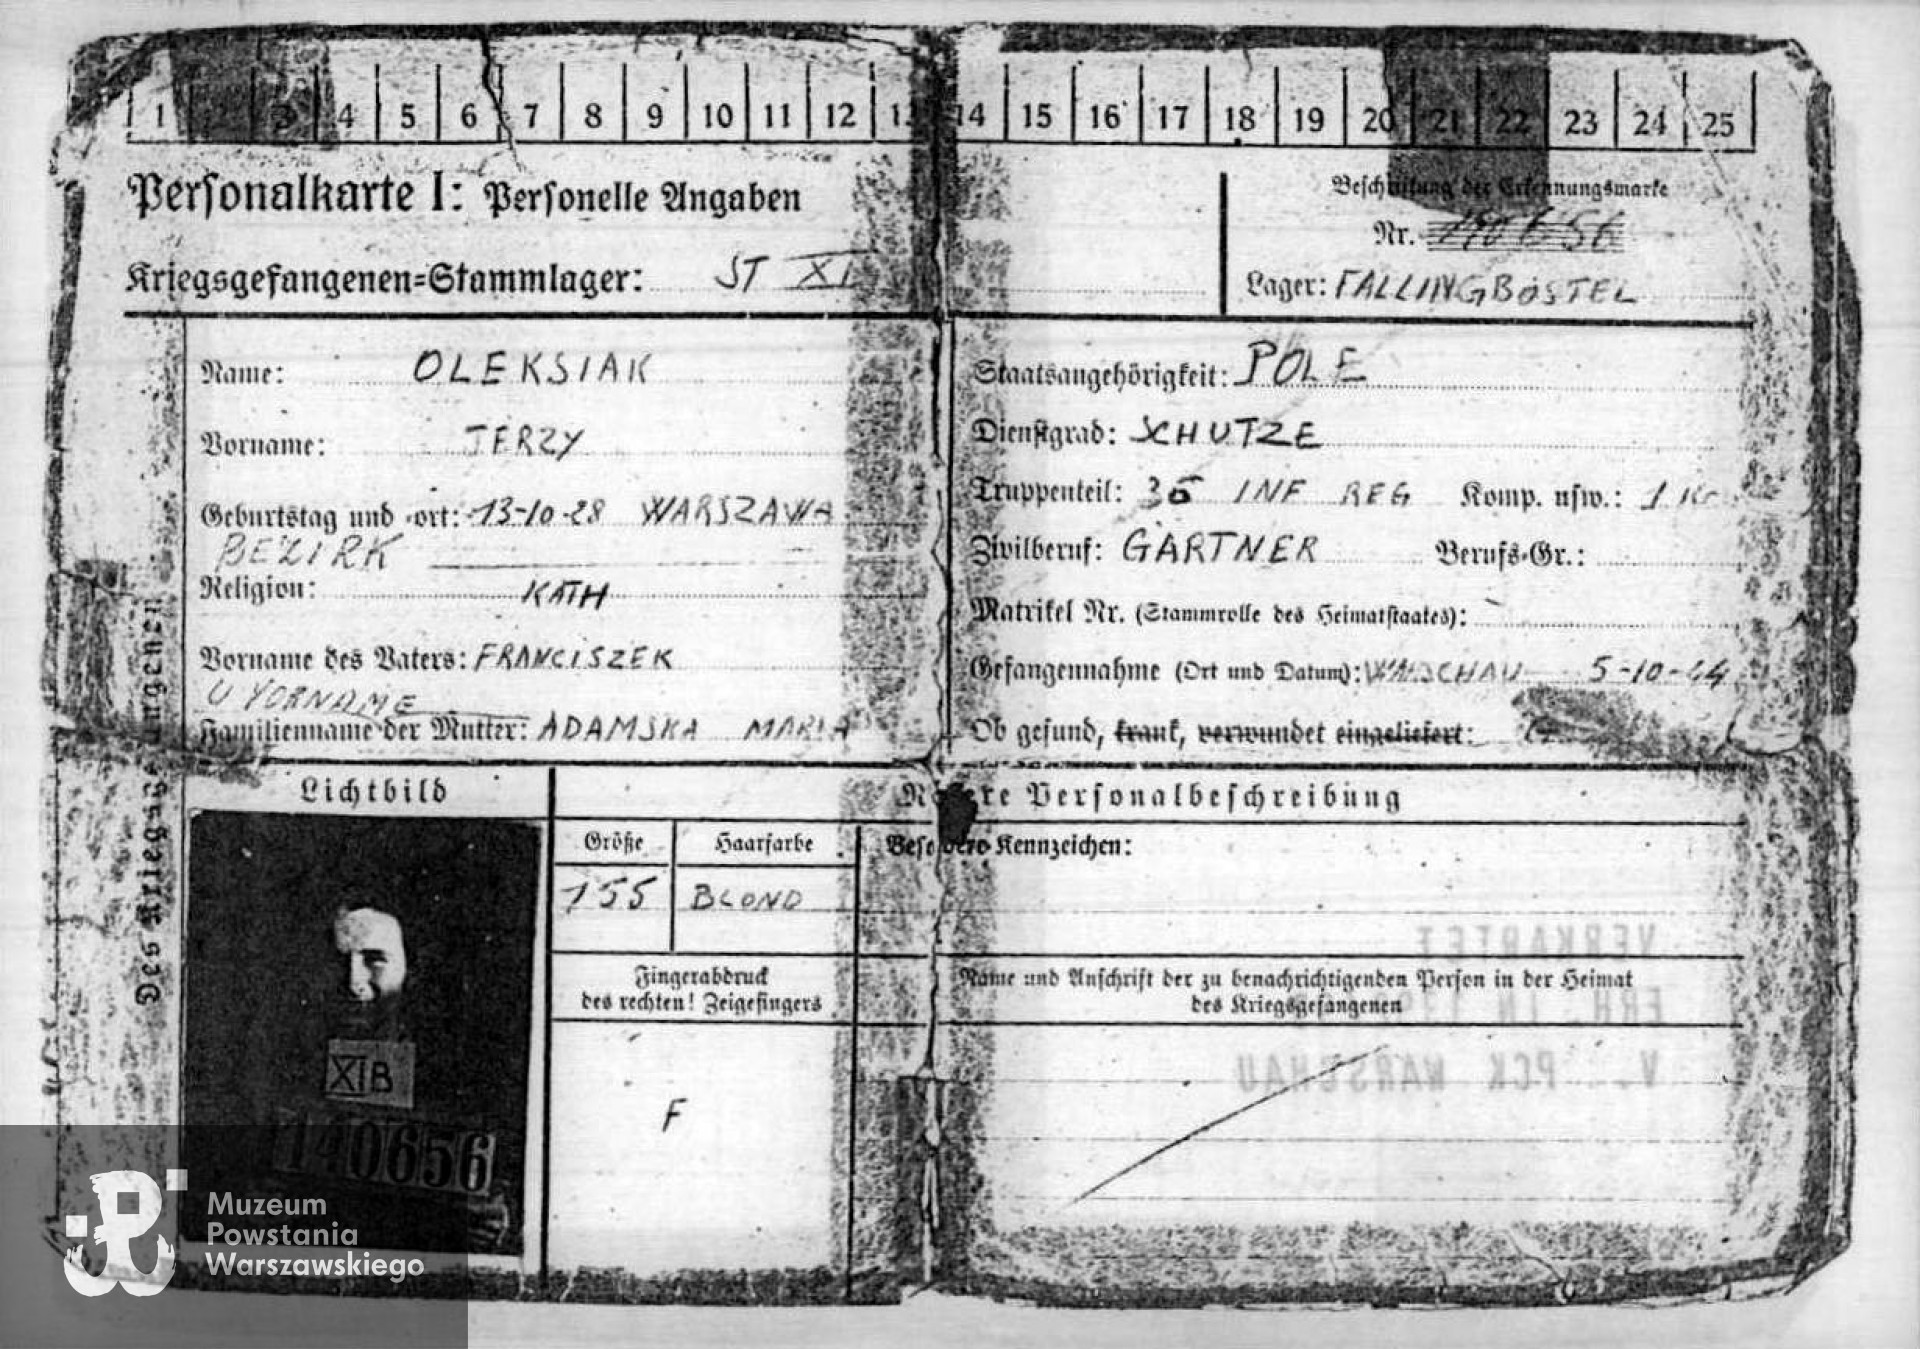 1 3 4 5 6 7 8 9 10 11 12 13 14 15 16 17 18 19 20 21 22 23 24 25
Personalkarte I: Personelle Angaben
Beschriftung der Erkennungsmarke
Nr. 140656
Kriegsgefangenen=Stammlager: ST XI
Lager: FALLINGBOSTEL
Name: OLEKSIAK
Staatsangehörigkeit: POLE
Vorname: JERZY
Dienstgrad: SCHUTZE
Geburtstag und -ort: 13-10-28 WARSZAWA
Truppenteil: 36 INF REG Komp. usw.: 1
BEZIRK
Zivilberuf: GÄRTNER Berufs-Gr.:
Religion: KATH
Matrikel Nr. (Stammrolle des Heimatstaates):
Vorname des Vaters: FRANCISZEK
Gefangennahme (Ort und Datum): WARSCHAU 5-10-44
U VORNAME
Familienname der Mutter: ADAMSKA MARIA
Ob gesund, krank, verwundet eingeliefert:
Des Kriegsgefangenen
Lichtbild
Nähere Personalbeschreibung
Größe Haarfarbe Besondere Kennzeichen:
155 BLOND
VERKARTET
Fingerabdruck
des rechten! Zeigefingers
Name und Anschrift der zu benachrichtigenden Person in der Heimat
des Kriegsgefangenen
ERH. IN
V. PCK WARSCHAU
F
XIB
140656
Muzeum
Powstania
Warszawskiego